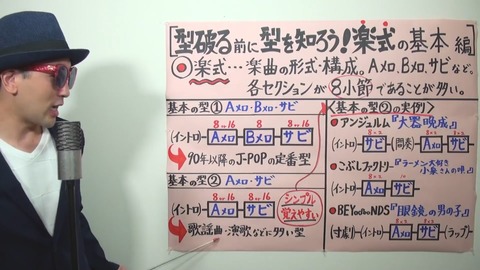 [型破る前に型を知ろう!楽式の基本 編]
◎楽式…楽曲の形式・構成。Aメロ、Bメロ、サビなど。
各セクションが8小節であることが多い。
基本の型① Aメロ・Bメロ・サビ
8or16 8 8or16
(イントロ) Aメロ Bメロ サビ
90年以降のJ-POPの定番型
基本の型② Aメロ・サビ
8or16 8or16
(イントロ) Aメロ サビ
シンプル
覚えやすい
歌謡曲・演歌などに多い型
<基本の型②の実例>
アンジュルム『大器晩成』
(イントロ) サビ (間奏) Aメロ サビ
こぶしファクトリー『ラーメン大好き
小泉さんの唄』
(イントロ) Aメロ サビ
BEYOOOOONDS『眼鏡の男の子』
(寸劇) (イントロ) Aメロ サビ (ラップ)